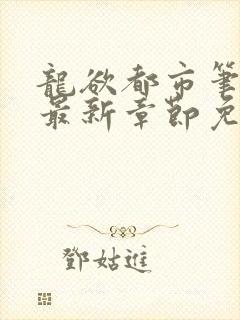 龍欲都市筆
最新章節免
鄧姑進